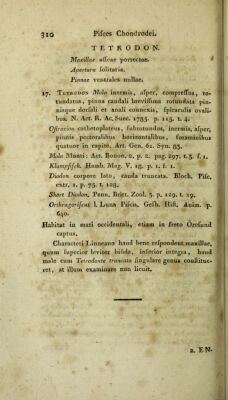 310 Pisces Chondrodei.
TETRODON.
Maxillae osseae porrectae.
Apertura solitaria.
Pinnae ventrales nullae.
17. TETRODON Mola inermis, asper, compressus, ro-
tundatus, pinna caudali brevissima rotundata pin-
nisque dorsali et anali connexis, spiraculis ovali-
bus. N. Act. R. Ac. Suec. 1785. p. 115. t. 4.
Ostracion cathetoplateus, subrotundus, inermis, asper,
pinnis pectoralibus horizontalibus, foraminibus
quatuor in capite. Art. Gen. 61. Syn. 83.
Mola Monti: Act. Bonon. 2. p. 2. pag. 297. t. 3. f. 1.
Klumpfisch. Hamb. Mag. V. 18. p. 1. f. 1.
Diodon corpore lato, cauda truncata. Bloch. Pisc.
extr. 1. p. 75. t. 128.
Short Diodon, Penn. Britt. Zool. 3. p. 129. t. 19.
Orthragoriscus l. Luna Piscis. Gesn. Hist. Anim. p.
640.
Habitat in mari occidentali, etiam in freto Oresund
captus.
Characteri Linneano haud bene respondent maxillae,
quum superior leviter bifida, inferior integra, haud
male cum Tetrodonte truncato singulare genus constitue-
ret, at illum examinare non licuit.
2. EN-